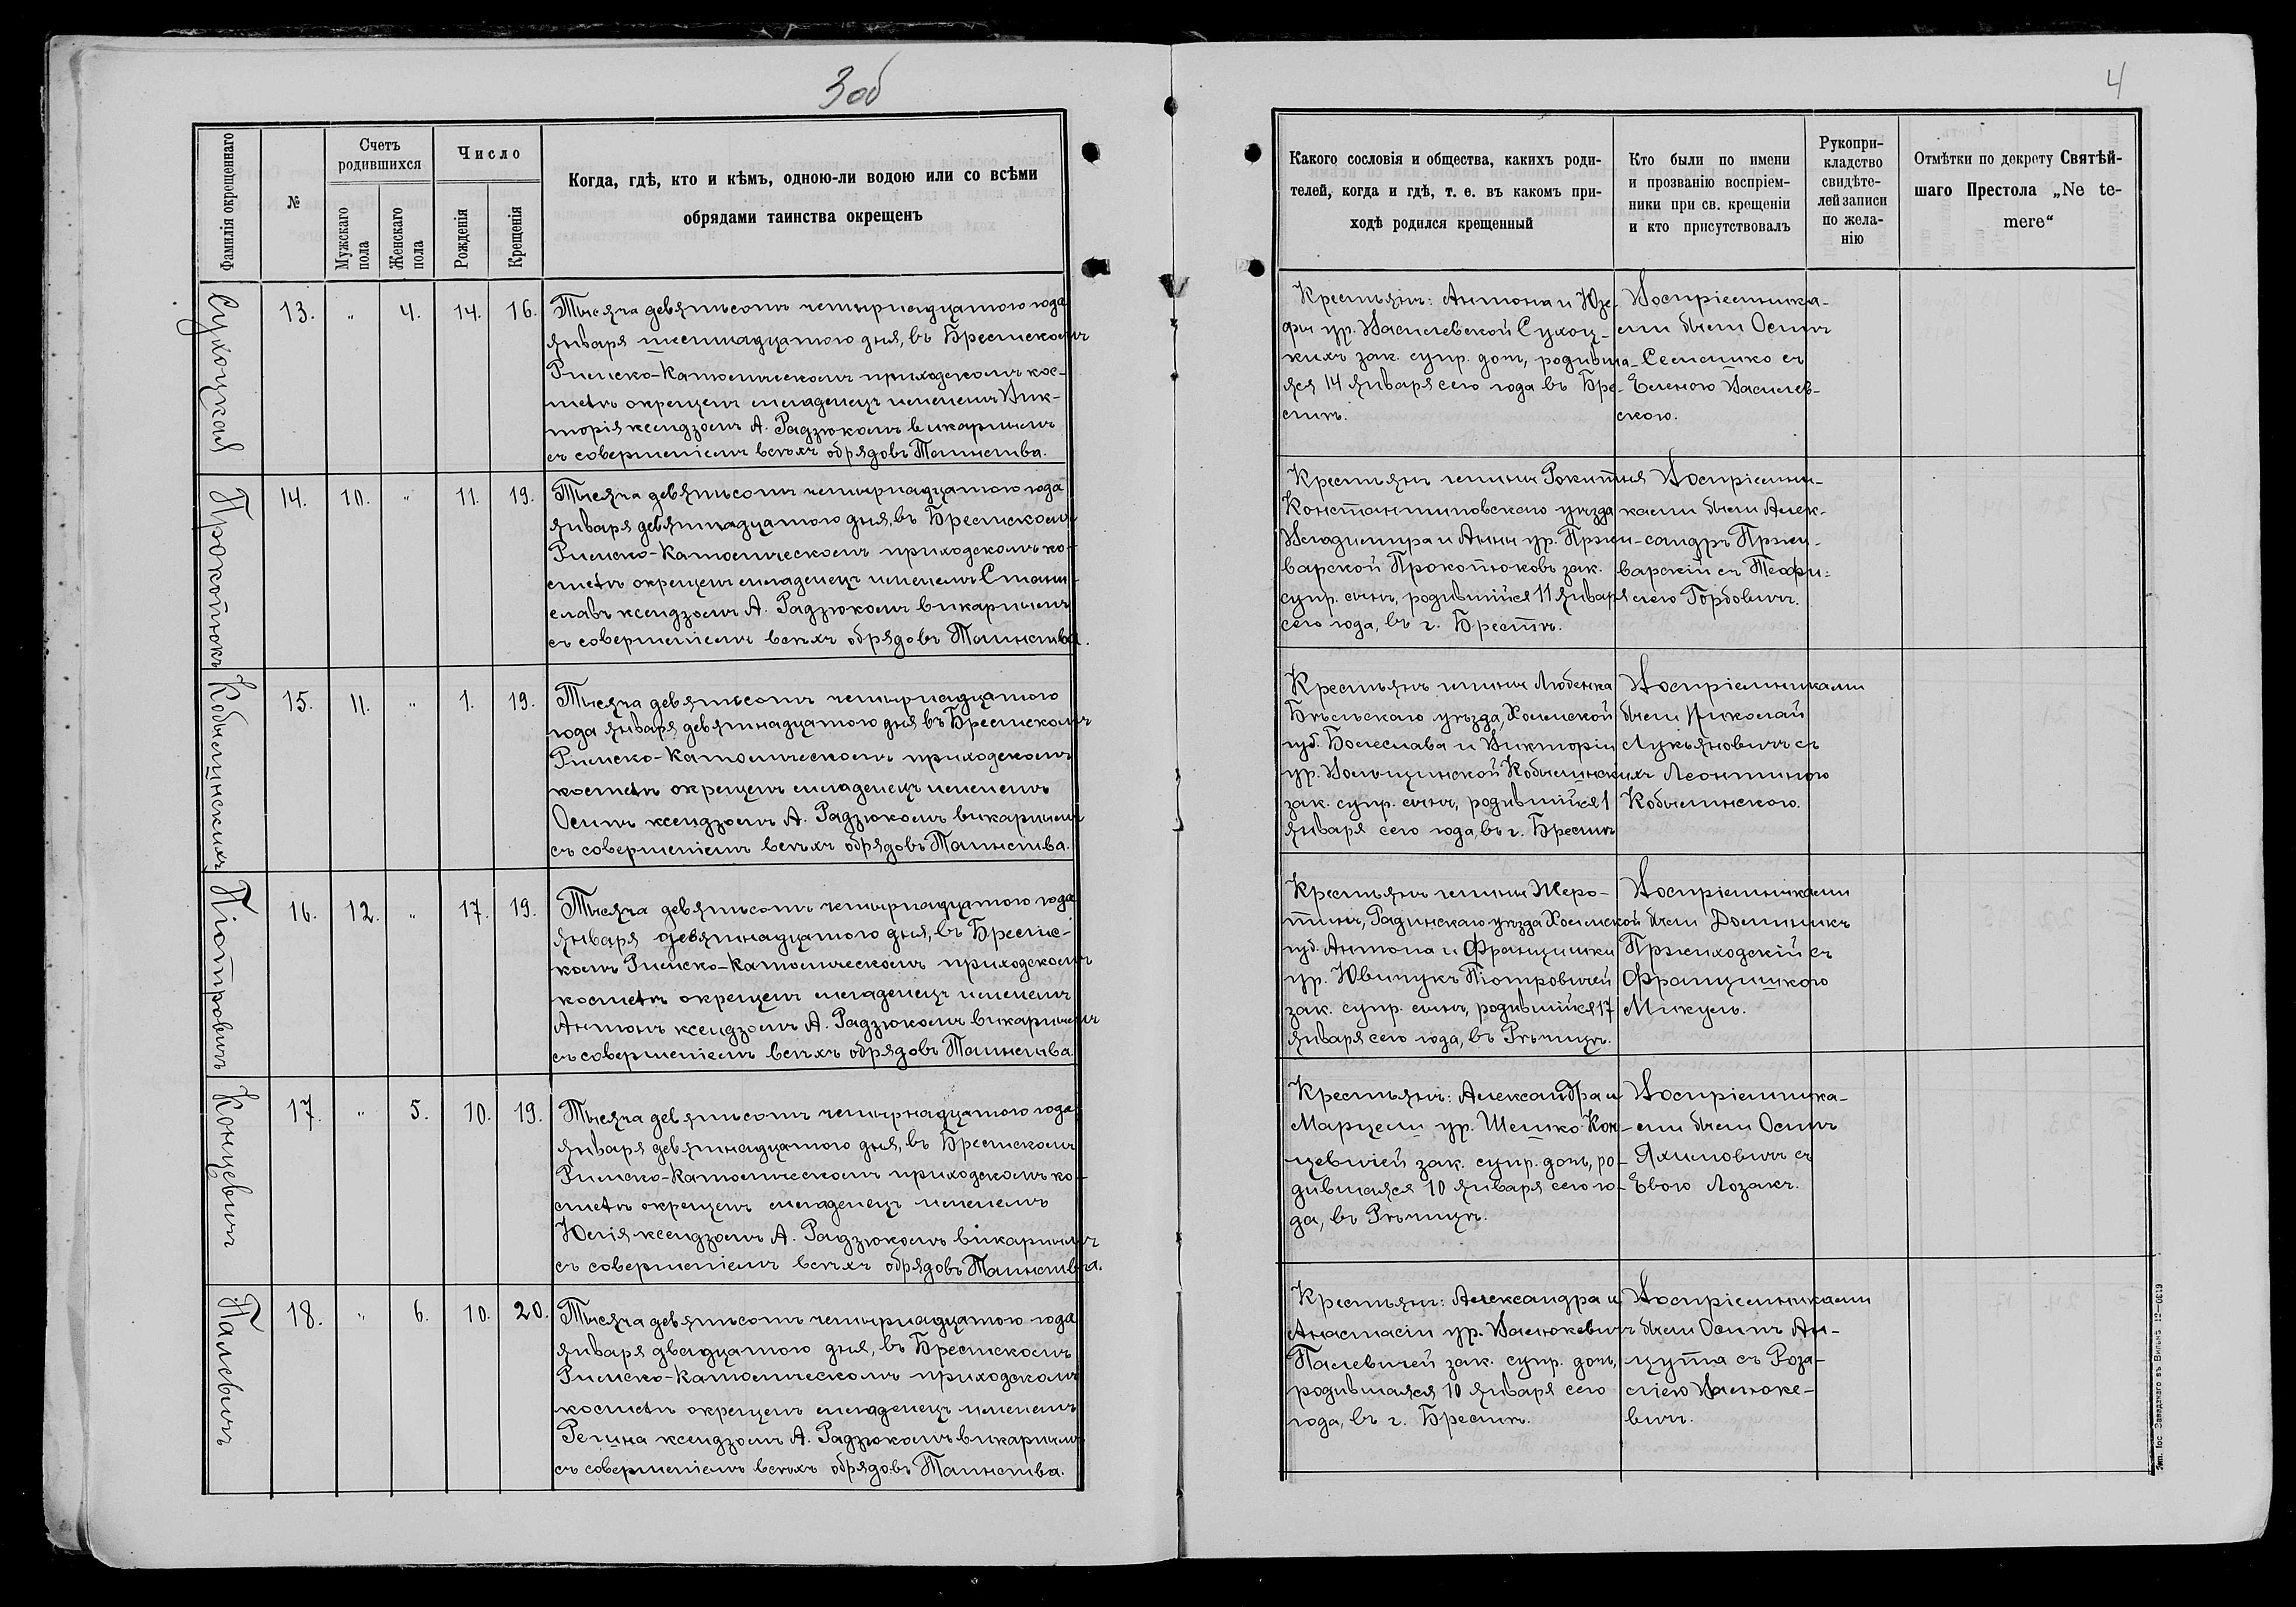 3 об
Фамилія окрещеннаго
№
Счетъ
родившихся
Мужскаго
пола
Женскаго
пола
Число
Рожденія
Крещенія
Когда, гдѣ, кто и кѣмъ, одною-ли водою или со всѣми
обрядами таинства окрещенъ
Сухоцкая
13.
"
4.
14.
16.
Тысяча девятьсотъ четырнадцатого года
января шестнадцатого дня, въ Брестскомъ
Римско-Католическомъ приходскомъ кос-
телѣ окрещенъ младенецъ именемъ Вик-
торія ксендзомъ А. Радзюкомъ викарнымъ
съ совершеніемъ всѣхъ обрядовъ Таинства.
Прокопюкъ
14.
10.
"
11.
19.
Тысяча девятьсотъ четырнадцатого года
января девятнадцатого дня, въ Брестскомъ
Римско-Католическомъ приходскомъ ко-
стелѣ окрещенъ младенецъ именемъ Стани-
славъ ксендзомъ А. Радзюкомъ викарнымъ
съ совершеніемъ всѣхъ обрядовъ Таинства.
Кобылинскихъ
15.
11.
"
1.
19.
Тысяча девятьсотъ четырнадцатого
года января девятнадцатого дня въ Брестскомъ
Римско-Католическомъ приходскомъ
костелѣ окрещенъ младенецъ именемъ
Осипъ ксендзомъ А. Радзюкомъ викарнымъ
съ совершеніемъ всѣхъ обрядовъ Таинства.
Піотровичъ
16.
12.
"
17.
19.
Тысяча девятьсотъ четырнадцатого года
января девятнадцатого дня, въ Брестс-
комъ Римско-Католическомъ приходскомъ
костелѣ окрещенъ младенецъ именемъ
Антонъ ксендзомъ А. Радзюкомъ викарнымъ
съ совершеніемъ всѣхъ обрядовъ Таинства.
Концевичъ
17.
"
5.
10.
19.
Тысяча девятьсотъ четырнадцатого года
января девятнадцатого дня, въ Брестскомъ
Римско-Католическомъ приходскомъ ко-
стелѣ окрещенъ младенецъ именемъ
Юлія ксендзомъ А. Радзюкомъ викарнымъ
съ совершеніемъ всѣхъ обрядовъ Таинства.
Палевичъ
18.
"
6.
10.
20.
Тысяча девятьсотъ четырнадцатого года
января двадцатого дня, въ Брестскомъ
Римско-Католическомъ приходскомъ
костелѣ окрещенъ младенецъ именемъ
Регина ксендзомъ А. Радзюкомъ викарнымъ
съ совершеніемъ всѣхъ обрядовъ Таинства.
4
Какого сословія и общества, какихъ роди-
телей, когда и гдѣ, т. е. въ какомъ при-
ходѣ родился крещенный
Кто были по имени
и прозванію воспріем-
ники при св. крещеніи
и кто присутствовалъ
Рукопри-
кладство
свидѣте-
лей записи
по жела-
нію
Отмѣтки по декрету Святѣй-
шаго Престола „Ne te-
mere“
Крестьянъ: Антона и Юзе-
фы ур. Василевской Сухоц-
кихъ зак. супр. дочь, родивша-
яся 14 января сего года въ Бре-
стѣ.
Воспріемника-
ми были Осипъ
Семашко съ
Еленою Василев-
скою.
Крестьянъ гмины Рокитня
Константиновскаго уѣзда
Владимира и Анны ур. Пржи-
варской Прокопюковъ зак.
супр. сынъ, родившійся 11 января
сего года, въ г. Брестѣ.
Воспріемни-
ками были Алек-
сандръ Пржи-
варскій съ Теофи-
лею Горбовичъ.
Крестьянъ гмины Любенка
Бѣльскаго уѣзда, Холмской
губ. Болеслава и Викторіи
ур. Вольщинской Кобылинскихъ
зак. супр. сынъ, родившійся 1
января сего года, въ г. Брестѣ
Воспріемниками
были Николай
Лукьяновичъ съ
Леонтиною
Кобылинскою.
Крестьянъ гмины Жеро-
тинъ, Радинскаго уѣзда Холмской
губ. Антона и Францишки
ур. Ювчукъ Піотровичей
зак. супр. сынъ, родившійся 17
января сего года, въ Рѣчицѣ.
Воспріемниками
были Доминикъ
Пржиходскій съ
Францишкою
Микуль.
Крестьянъ: Александра и
Марцели ур. Шешко Кон-
цевичей зак. супр. дочь, ро-
дившаяся 10 января сего го-
да, въ Рѣчицѣ.
Воспріемника-
ми были Осипъ
Яхимовичъ съ
Евою Лозакъ.
Крестьянъ: Александра и
Анастасіи ур. Валюкевичъ
Палевичей зак. супр. дочь,
родившаяся 10 января сего
года, въ г. Брестѣ.
Воспріемниками
были Осипъ Ан-
цута съ Роза-
ліею Валюке-
вичъ.
Тип. Іос. Завадзкаго въ Вильнѣ